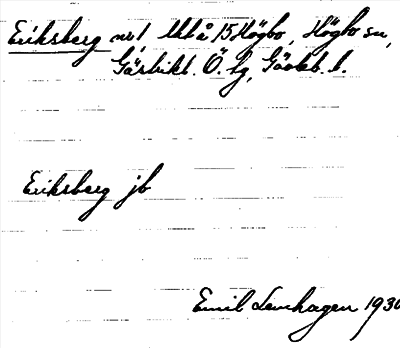 Eriksberg nr 1 Utbå 15 Högbo, Högbo sn,
Gästrikl. Ö. tg, Gävleb. l.
Eriksberg jb
Emil Lenhagen 1930